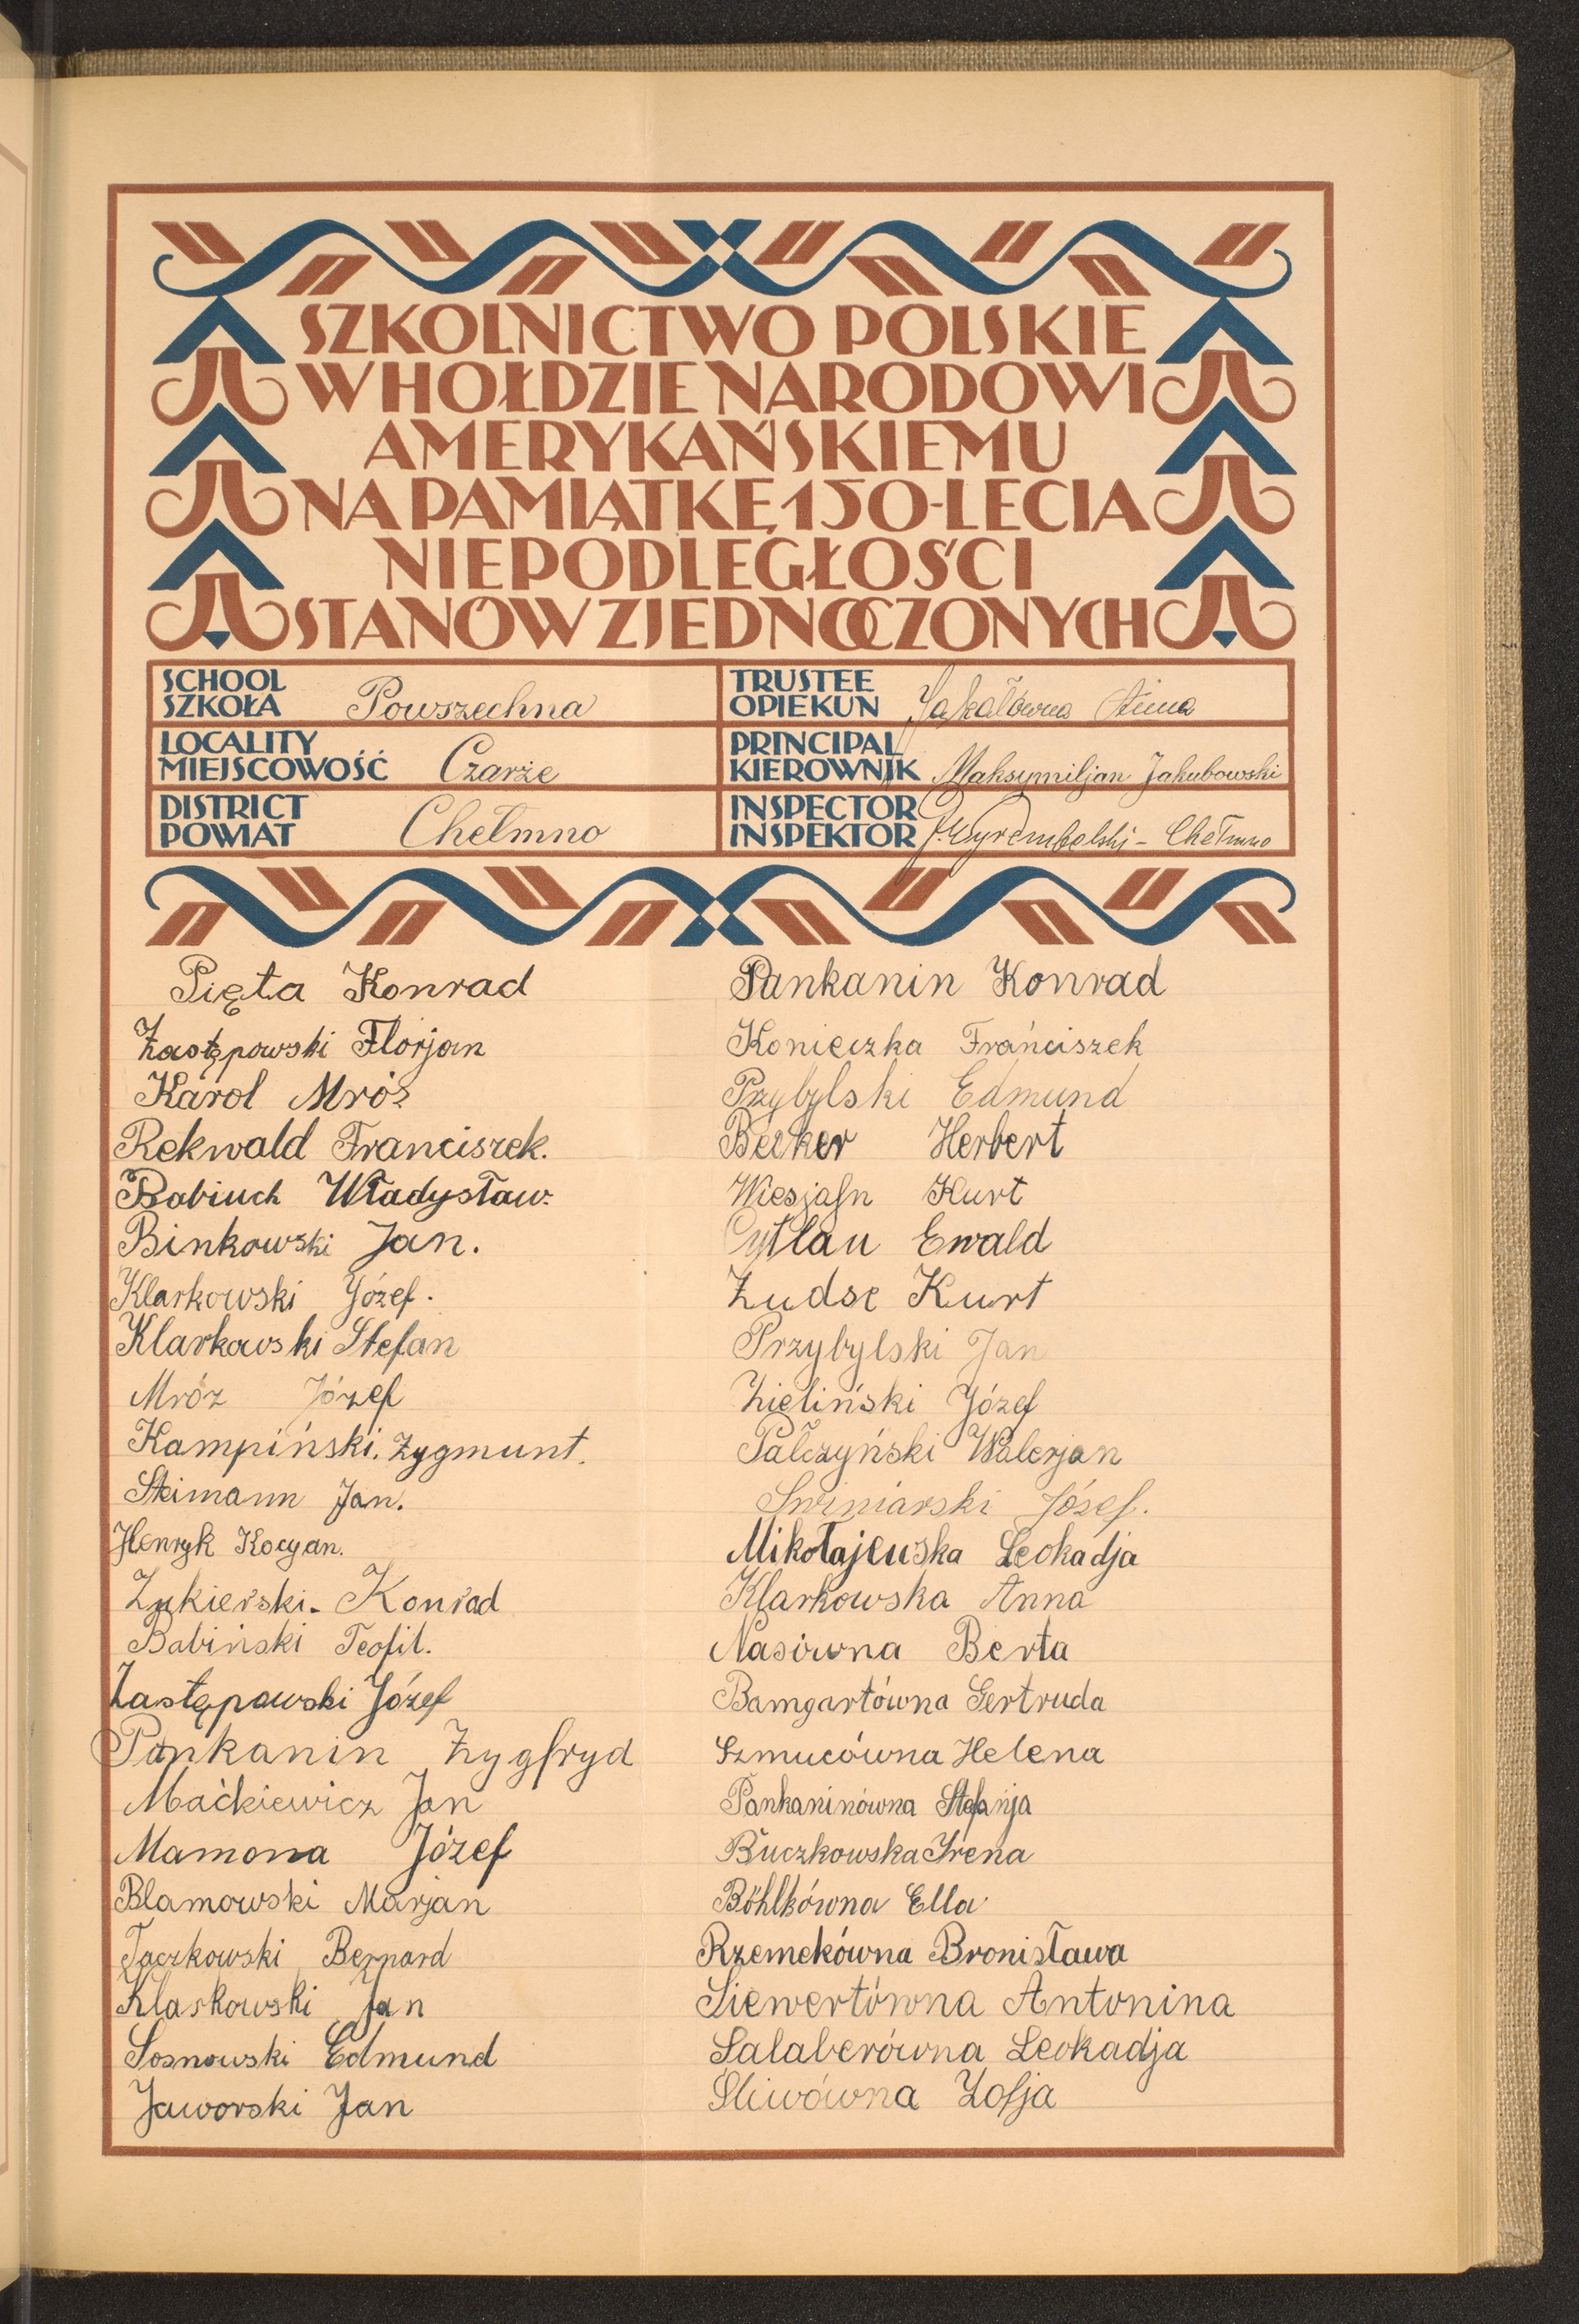 SZKOLNICTWO POLSKIE
W HOŁDZIE NARODOWI
AMERYKAŃSKIEMU
NA PAMIĄTKĘ 150-LECIA
NIEPODLEGŁOŚCI
STANÓW ZJEDNOCZONYCH
SCHOOL
SZKOŁA Powszechna
LOCALITY
MIEJSCOWOŚĆ Czarże
DISTRICT
POWIAT Chełmno
TRUSTEE
OPIEKUN Anna
PRINCIPAL
KIEROWNIK Maksymiljan Jakubowski
INSPECTOR
INSPEKTOR Wyrembelski - Chełmno
Pięta Konrad
Zastępowski Florjan
Karol Mróz
Rekwald Franciszek.
Babiuch Władysław.
Binkowski Jan.
Klarkowski Józef.
Klarkowski Stefan
Mróz Józef
Kampiński. Zygmunt.
Steimann Jan.
Henryk Kocyan.
Żukierski. Konrad
Babiński Teofil.
Zastępowski Józef
Pankanin Zygfryd
Maćkiewicz Jan
Mamona Józef
Blamowski Marjan
Taczkowski Bernard
Klaskowski Jan
Sosnowski Edmund
Jaworski Jan
Pankanin Konrad
Konieczka Franciszek
Przybylski Edmund
Becker Herbert
Kurt
Cytlau Ewald
Zudse Kurt
Przybylski Jan
Zieliński Józef
Pałczyński Walerjan
Świniarski Józef.
Mikołajewska Leokadja
Klarkowska Anna
Nasiwna Berta
Bamgartówna Gertruda
Szmucówna Helena
Pankaninówna Stefanja
Buczkowska Irena
Böhlkówna Ella
Rzemekówna Bronisława
Siewertówna Antonina
Salaberówna Leokadja
Śliwówna Zofja